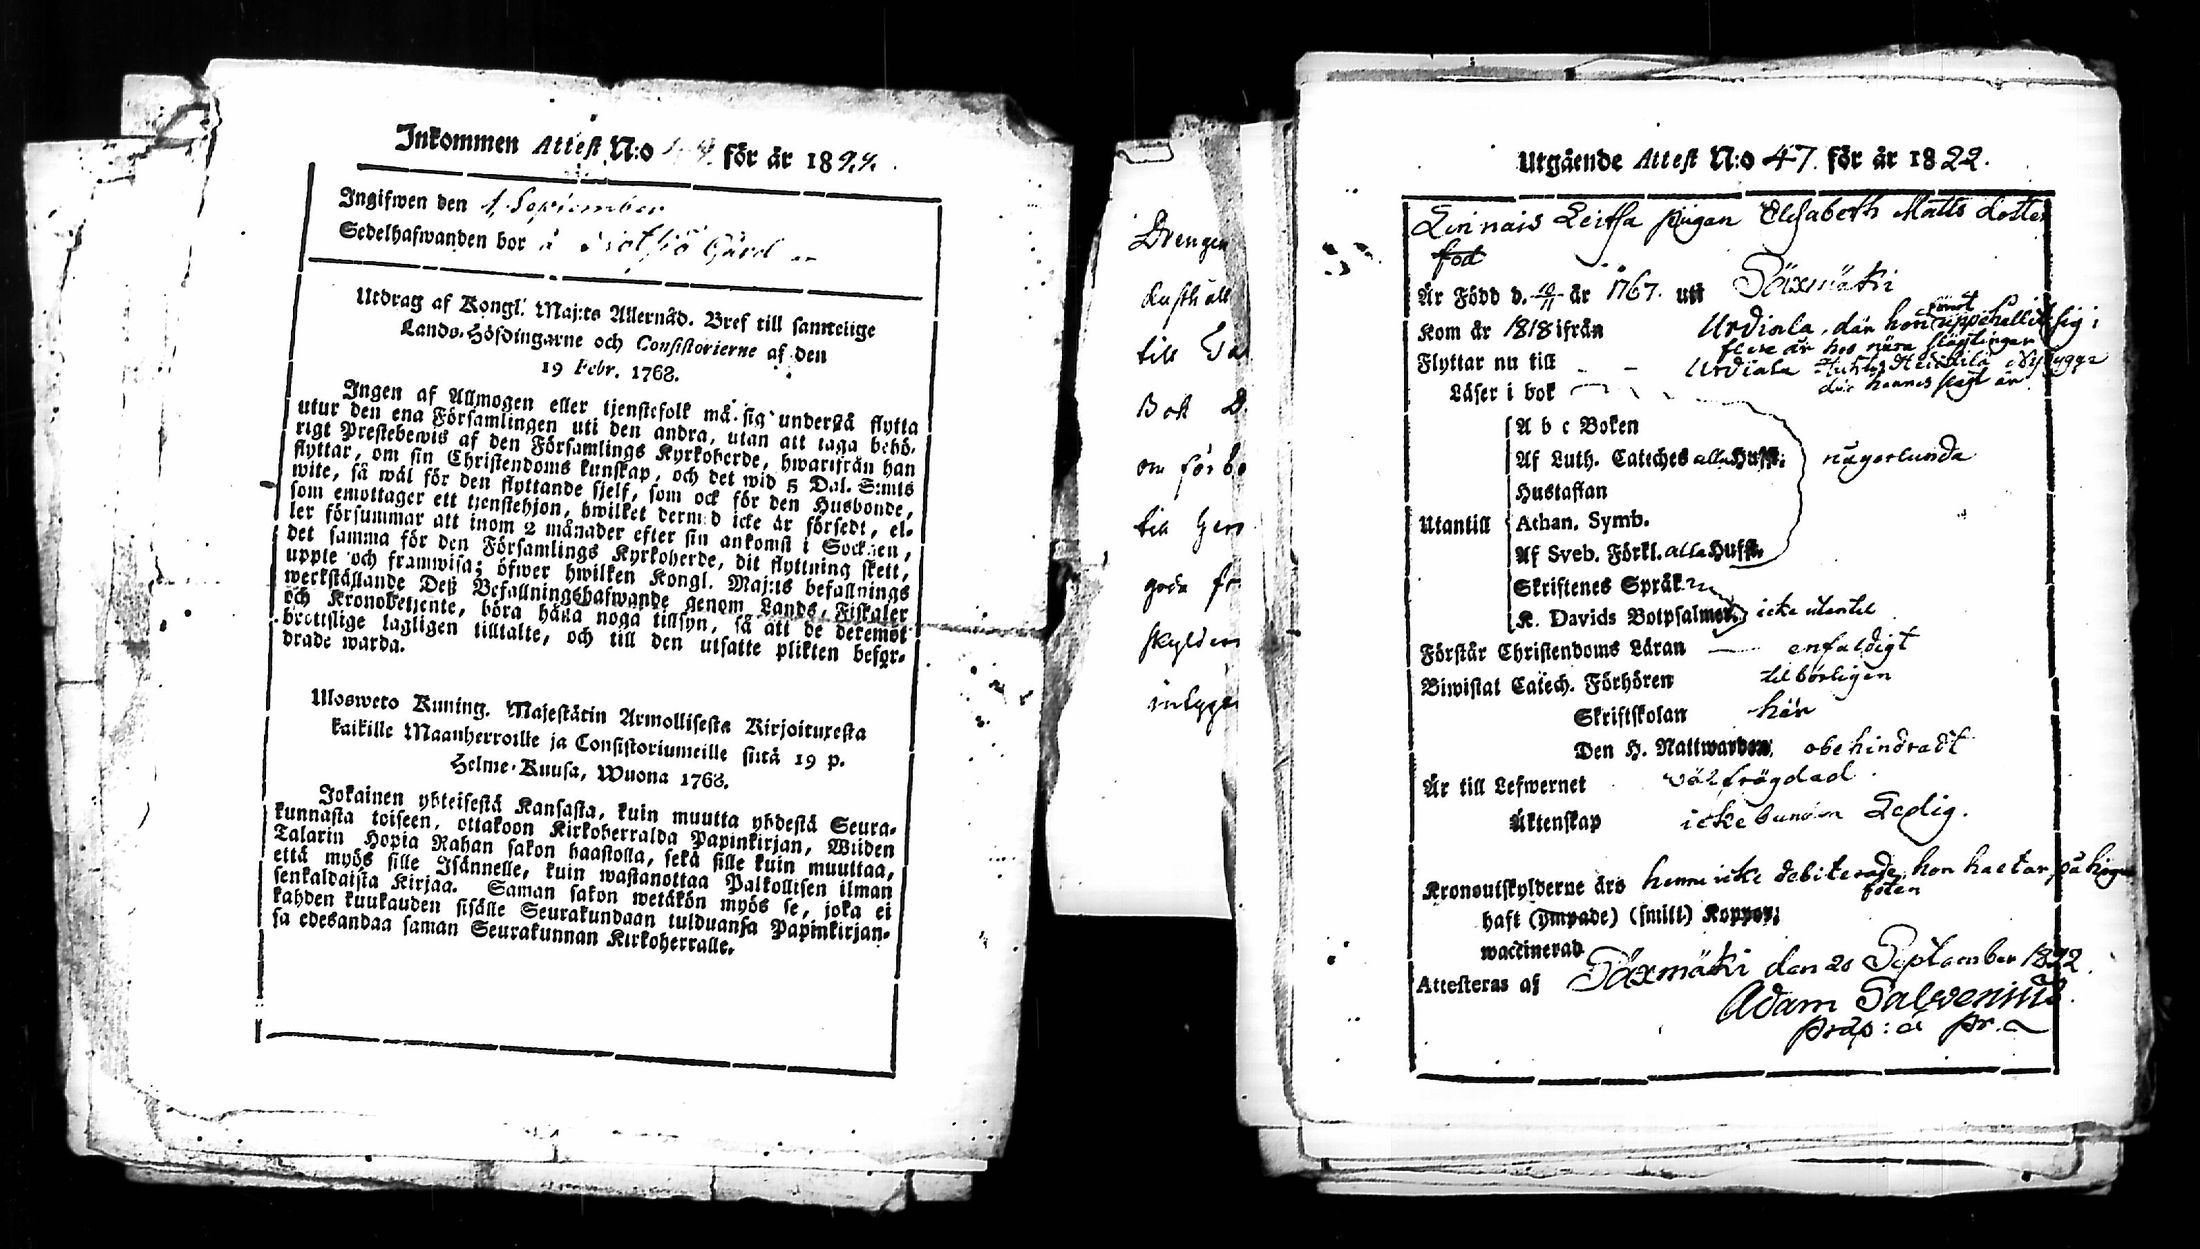 Inkommen Attest N:o för år 1822.
Ingifwen den 1 September
Sedelhafwanden bor å Gård
Utdrag af Kongl. Maj:ts Allernåd. Bref till samtelige
Lands-Höfdingarne och Consistorierne af den
19 Febr. 1768.
Ingen af Allmogen eller tjenstefolk må sig understå flytta
utur den ena Församlingen uti den andra, utan att taga behö-
rigt Prestebewis af den Församlings Kyrkoherde, hwarifrån han
flyttar, om sin Christendoms kunskap, och det wid 5 Dal. S:mts
wite, så wäl för den flyttande sjelf, som ock för den Husbonde,
som emottager ett tjenstehjon, hwilket dermed icke är försedt, el-
ler försummar att inom 2 månader efter sin ankomst i Socknen,
det samma för den Församlings Kyrkoherde, dit flyttning skett,
uppte och framwisa; öfwer hwilken Kongl. Maj:ts befallnings
werkställande Deß Befallningshafwande genom Lands, Fiskaler
och Kronobetjente, böra hålla noga tillsyn, så att de deremot
brottslige lagligen tilltalte, och till den utsatte plikten befor-
drade warda.
Ulosweto Kuning. Majestätin Armollisesta Kirjoituxesta
kaikille Maanherroille ja Consistoriumeille siitä 19 p.
Helme-Kuusa, Wuona 1768.
Jokainen yhteisestä Kansasta, kuin muutta yhdestä Seura-
kunnasta toiseen, ottakoon Kirkoherralda Papinkirjan, Wiiden
Talarin Hopia Rahan sakon haastolla, sekä sille kuin muuttaa,
että myös sille Isännelle, kuin wastanottaa Palkollisen ilman
senkaldaista Kirjaa. Saman sakon wetäkön myös se, joka ei
kahden kuukauden sisälle Seurakundaan tulduansa Papinkirjan-
sa edesandaa saman Seurakunnan Kirkoherralle.
Drengen
till
Bok
om förbe
till
goda
skylden
Utgående Attest N:o 47. för år 1822.
pigan Elisabeth Matts dotter
föd
Är Född d. 10/11 år 1767. uti Säxmäki
Kom år 1818 ifrån Urdiala, där hon förut uppehållit sig i
flere år hos nära släktingar
Flyttar nu till Urdiala
där hennes slägt är
Läser i bok
A b c Boken
Af Luth. Cateches alla Hufst. någorlunda
Hustaflan
Utantill Athan. Symb.
Af Sveb. Förkl. alla Hufst.
Skriftenes Språk
K. Davids Botpsalmer. icke utantil
Förstår Christendoms Läran enfaldigt
Biwistat Catech. Förhören tilbörligen
Skriftskolan här
Den H. Nattwarden; obehindradt
Är till Lefwernet välfrägdad
Äktenskap icke bunden Ledig.
Kronoutskylderne äro henne icke debiterade, hon haltar på högra
foten
haft (ympade) (smitt) Koppor;
waccinerad
Attesteras af Säxmäki den 20 September 1822.
Adam Salvenius
Präp: & Pr.